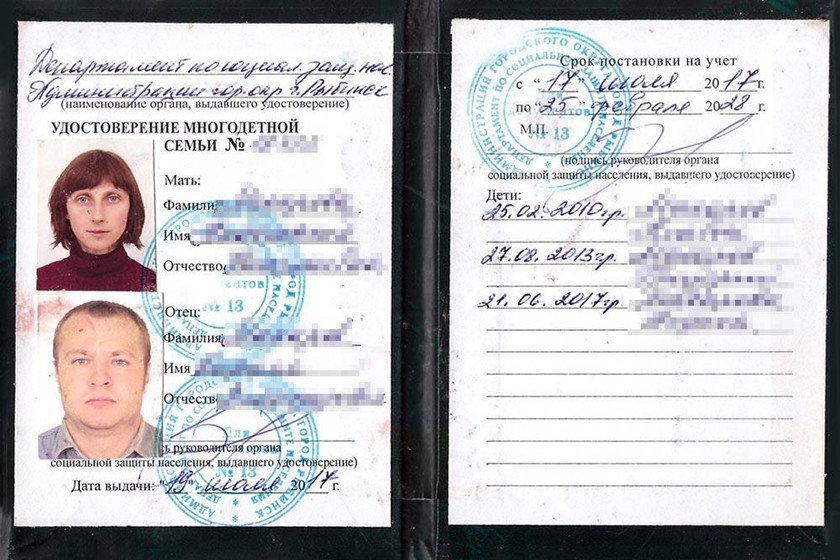 Департамент по социал. защ. нас.
Администрации гор. окр. г. Рыбинск
(наименование органа, выдавшего удостоверение)
УДОСТОВЕРЕНИЕ МНОГОДЕТНОЙ
СЕМЬИ №
Мать:
Фамилия
Имя
Отчество
Отец:
Фамилия
Имя
Отчество
руководителя органа
социальной защиты населения, выдавшего удостоверение)
Дата выдачи: "19" июля 2017 г.
Срок постановки на учет
с "17" июля 2017 г.
по "25" февраля 2028 г.
М.П.
(подпись руководителя органа
социальной защиты населения, выдавшего удостоверение)
Дети:
25.02.2010г.р.
27.08.2013г.р.
21.06.2017г.р.
№ 13
№ 13
№ 13